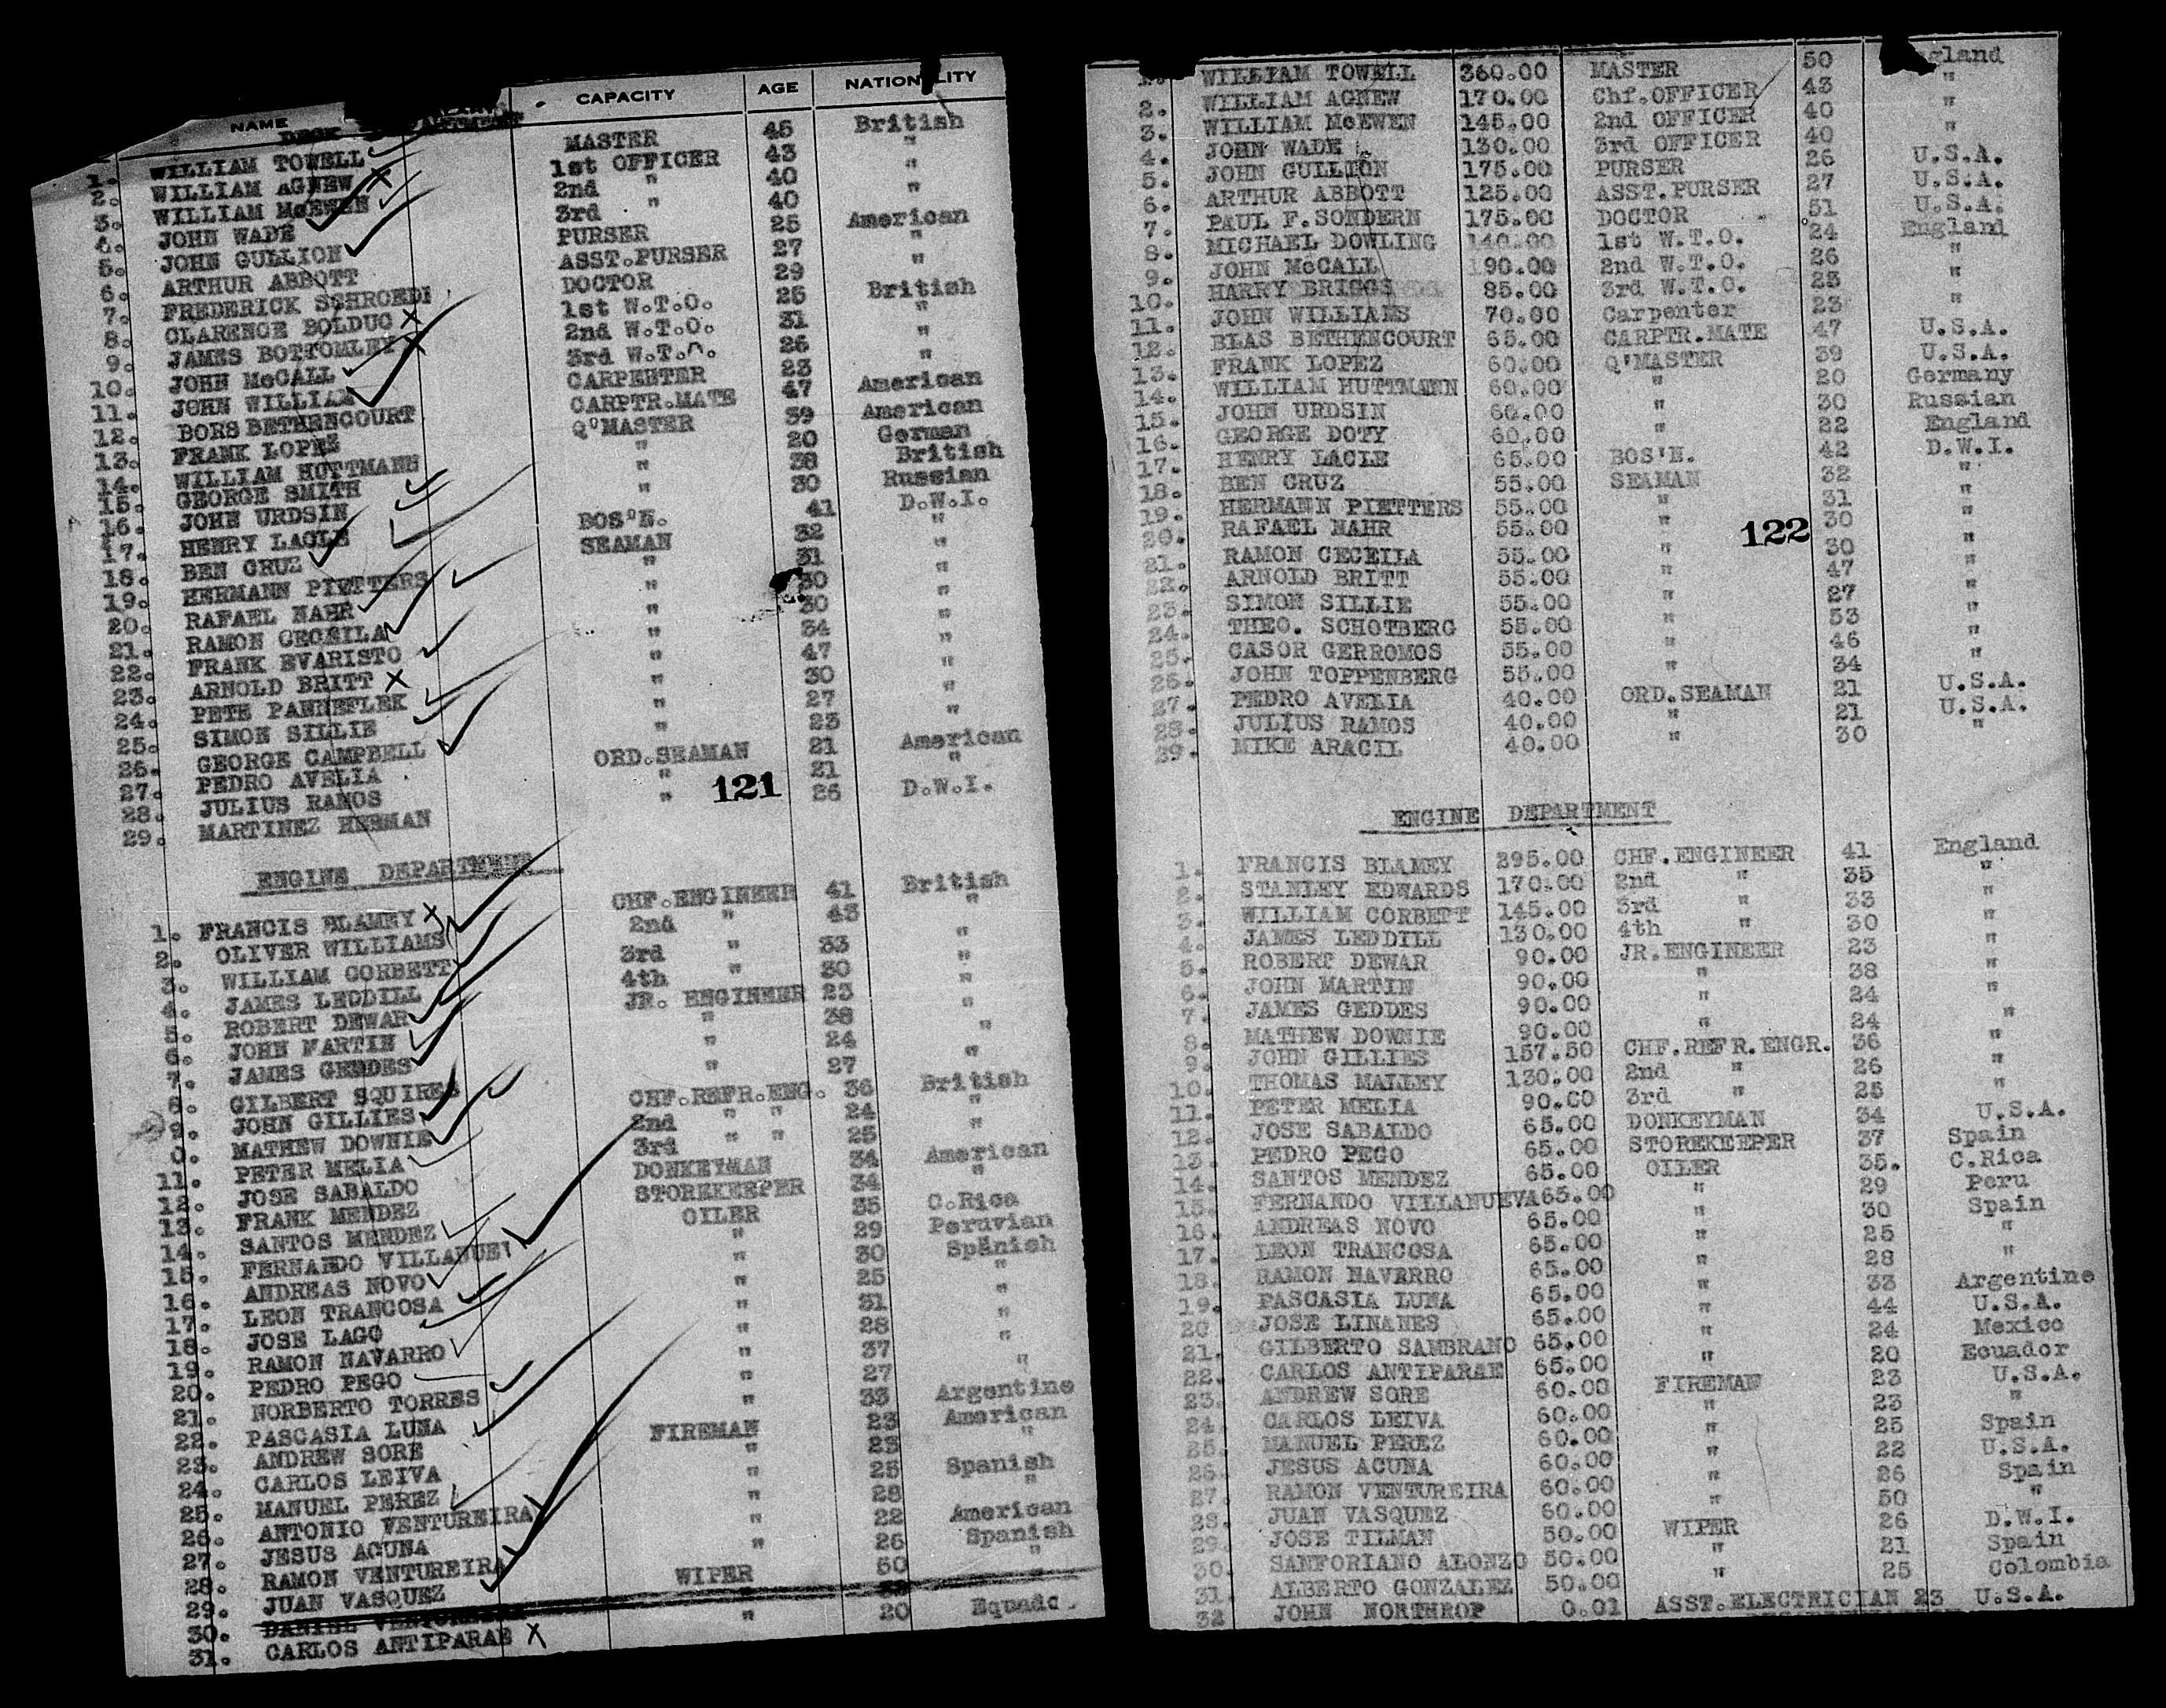 NAME CAPACITY AGE NATIONALITY
DECK
1. WILLIAM TOWELL MASTER 45 British
2. WILLIAM AGNEW 1st OFFICER 43 "
3. WILLIAM McEWEN 2nd " 40 "
4. JOHN WADE 3rd " 40 "
5. JOHN GULLION PURSER 25 American
6. ARTHUR ABBOTT ASST.PURSER 27 "
7. FREDERICK SCHROEDI DOCTOR 29 "
8. CLARENCE BOLDUC 1st W.T.O. 25 British
9. JAMES BOTTOMLEY 2nd W.T.O. 31 "
10. JOHN McCALL 3rd W.T.O. 26 "
11. JOHN WILLIAM CARPENTER 23 "
12. BORS BETHENCOURT CARPTR.MATE 47 American
13. FRANK LOPEZ Q'MASTER 39 American
14. WILLIAM HUTTMANN " 20 German
15. GEORGE SMITH " 38 British
16. JOHN URDSIN " 30 Russian
17. HENRY LACLE BOS'N. 41 D.W.I.
18. BEN CRUZ SEAMAN 32 "
19. HERMANN PIETTERS " 31 "
20. RAFAEL NAHR " 30 "
21. RAMON CECEILA " 30 "
22. FRANK EVARISTO " 34 "
23. ARNOLD BRITT " 47 "
24. PETE PANNEFLEK " 30 "
25. SIMON SILLIE " 27 "
26. GEORGE CAMPBELL " 23 "
27. PEDRO AVELIA ORD.SEAMAN 21 American
28. JULIUS RAMOS " 21 "
29. MARTINEZ HERMAN " 26 D.W.I.
121
ENGINE DEPARTMENT
1. FRANCIS BLAMEY CHF.ENGINEER 41 British
2. OLIVER WILLIAMS 2nd " 43 "
3. WILLIAM CORBETT 3rd " 33 "
4. JAMES LEDDILL 4th " 30 "
5. ROBERT DEWAR JR. ENGINEER 23 "
6. JOHN MARTIN " 38 "
7. JAMES GEDDES " 24 "
8. GILBERT SQUIRES " 27 "
9. JOHN GILLIES CHF.REFR.ENG. 36 British
0. MATHEW DOWNIE 2nd " " 24 "
11. PETER MELIA 3rd " " 25 "
12. JOSE SABALDO DONKEYMAN 34 American
13. FRANK MENDEZ STOREKEEPER 34 "
14. SANTOS MENDEZ OILER 35 C.Rica
15. FERNANDO VILLANUEV " 29 Peruvian
16. ANDREAS NOVO " 30 Spanish
17. LEON TRANCOSA " 25 "
18. JOSE LAGO " 31 "
19. RAMON NAVARRO " 28 "
20. PEDRO PEGO " 37 "
21. NORBERTO TORRES " 27 "
22. PASCASIA LUNA " 33 Argentine
23. ANDREW SORE FIREMAN 23 American
24. CARLOS LEIVA " 23 "
25. MANUEL PEREZ " 25 Spanish
26. ANTONIO VENTUREIRA " 28 "
27. JESUS ACUNA " 22 American
28. RAMON VENTUREIRA " 26 Spanish
29. JUAN VASQUEZ WIPER 50 "
30. DANIEL
31. CARLOS ANTIPARAE " 20 Equado.
1. WILLIAM TOWELL 360.00 MASTER 50 England
2. WILLIAM AGNEW 170.00 Chf.OFFICER 43 "
3. WILLIAM McEWEN 145.00 2nd OFFICER 40 "
4. JOHN WADE 130.00 3rd OFFICER 40 "
5. JOHN GULLION 175.00 PURSER 26 U.S.A.
6. ARTHUR ABBOTT 125.00 ASST.PURSER 27 U.S.A.
7. PAUL F.SONDERN 175.00 DOCTOR 51 U.S.A.
8. MICHAEL DOWLING 140.00 1st W.T.O. 24 England
9. JOHN McCALL 90.00 2nd W.T.O. 26 "
10. HARRY BRIGGS 85.00 3rd W.T.O. 23 "
11. JOHN WILLIAMS 70.00 Carpenter 23 "
12. BLAS BETHENCOURT 65.00 CARPTR.MATE 47 U.S.A.
13. FRANK LOPEZ 60.00 Q'MASTER 39 U.S.A.
14. WILLIAM HUTTMANN 60.00 " 20 Germany
15. JOHN URDSIN 60.00 " 30 Russian
16. GEORGE DOTY 60.00 " 22 England
17. HENRY LACLE 65.00 BOS'N. 42 D.W.I.
18. BEN CRUZ 55.00 SEAMAN 32 "
19. HERMANN PIETTERS 55.00 " 31 "
20. RAFAEL NAHR 55.00 " 30 "
122
21. RAMON CECEILA 55.00 " 30 "
22. ARNOLD BRITT 55.00 " 47 "
23. SIMON SILLIE 55.00 " 27 "
24. THEO. SCHOTBERG 55.00 " 53 "
25. CASOR GERROMOS 55.00 " 46 "
26. JOHN TOPPENBERG 55.00 " 34 "
27. PEDRO AVELIA 40.00 ORD.SEAMAN 21 U.S.A.
28. JULIUS RAMOS 40.00 " 21 U.S.A.
29. MIKE ARACIL 40.00 " 30 "
ENGINE DEPARTMENT
1. FRANCIS BLAMEY 295.00 CHF.ENGINEER 41 England
2. STANLEY EDWARDS 170.00 2nd " 35 "
3. WILLIAM CORBETT 145.00 3rd " 33 "
4. JAMES LEDDILL 130.00 4th " 30 "
5. ROBERT DEWAR 90.00 JR.ENGINEER 23 "
6. JOHN MARTIN 90.00 " 38 "
7. JAMES GEDDES 90.00 " 24 "
8. MATHEW DOWNIE 90.00 " 24 "
9. JOHN GILLIES 157.50 CHF.REFR.ENGR. 36 "
10. THOMAS MALLEY 130.00 2nd " 26 "
11. PETER MELIA 90.00 3rd " 25 "
12. JOSE SABALDO 65.00 DONKEYMAN 34 U.S.A.
13. PEDRO PEGO 65.00 STOREKEEPER 37 Spain
14. SANTOS MENDEZ 65.00 OILER 35. C.Rica
15. FERNANDO VILLANUEVA65.00 " 29 Peru
16. ANDREAS NOVO 65.00 " 30 Spain
17. LEON TRANCOSA 65.00 " 25 "
18. RAMON NAVERRO 65.00 " 28 "
19. PASCASIA LUNA 65.00 " 33 Argentine
20 JOSE LINANES 65.00 " 44 U.S.A.
21. GILBERTO SAMBRANO 65.00 " 24 Mexico
22. CARLOS ANTIPARAE 65.00 " 20 Ecuador
23. ANDREW SORE 60.00 FIREMAN 23 U.S.A.
24. CARLOS LEIVA 60.00 " 23 "
25. MANUEL PEREZ 60.00 " 25 Spain
26. JESUS ACUNA 60.00 " 22 U.S.A.
27. RAMON VENTUREIRA 60.00 " 26 Spain
28. JUAN VASQUEZ 60.00 " 50 "
29. JOSE TILMAN 50.00 WIPER 26 D.W.I.
30. SANFORIANO ALONZO 50.00 " 21 Spain
31. ALBERTO GONZALEZ 50.00 " 25 Colombia
32 JOHN NORTHROP 0.01 ASST.ELECTRICIAN 23 U.S.A.